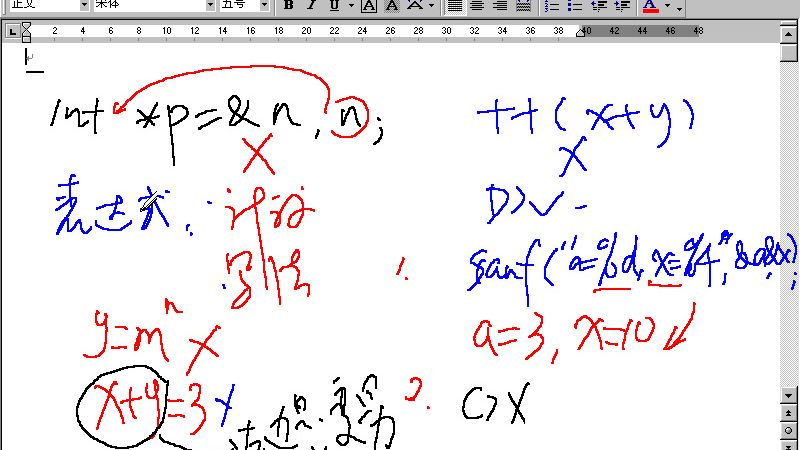 正文 宋体 五号 B I U A A
2 4 6 8 10 12 14 16 18 20 22 24 26 28 30 32 34 36 38 40 42 44 46 48
int *p=&n, n;
X
表达式: 计算
y=m^n X
x+y=3 X
++(x+y)
X
D>✓
scanf("a=%d, x=%f", &a,&x);
a=3, x=10 ↙
1.
2. C> X